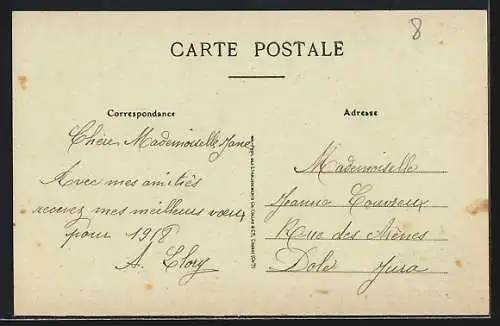 8
CARTE POSTALE
Correspondance
Adresse
Chère Mademoiselle Jane
Avec mes amitiés
recevez mes meilleurs vœux
pour 1918
A. Clory
Mademoiselle
Jeanne Couvreux
Rue des Arènes
Dole Jura